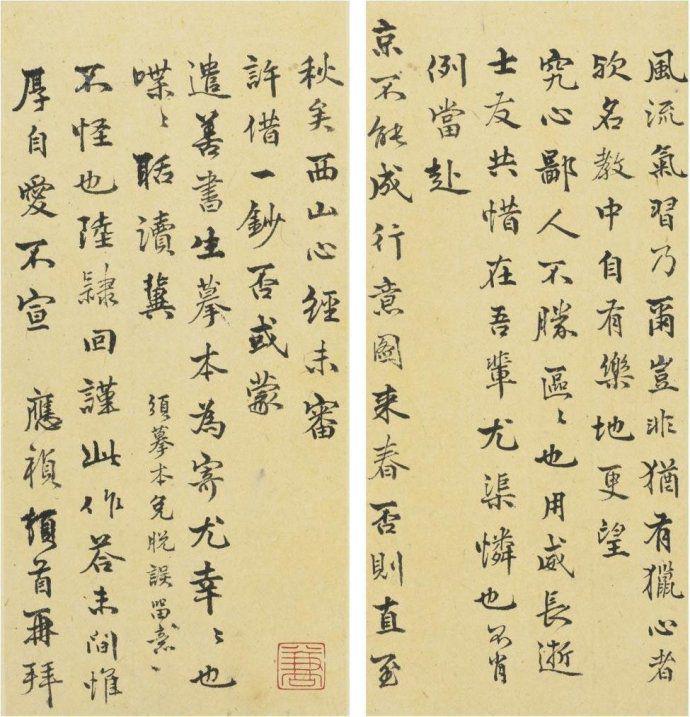 風流氣習乃爾豈非猶有獵心者
欤名教中自有樂地更望
究心鄙人不勝區〻也用威長逝
士友共惜在吾輩尤渠憐也不肖
例當赴
京不能成行意圖来春否則直至
秋矣西山心經未審
許借一鈔否或蒙
遣善書生摹本為寄尤幸〻也
喋〻聒讀冀
須摹本免脫誤留意〻
不怪也陸隸回謹此作荅未間惟
厚自愛不宣 應禎頓首再拜